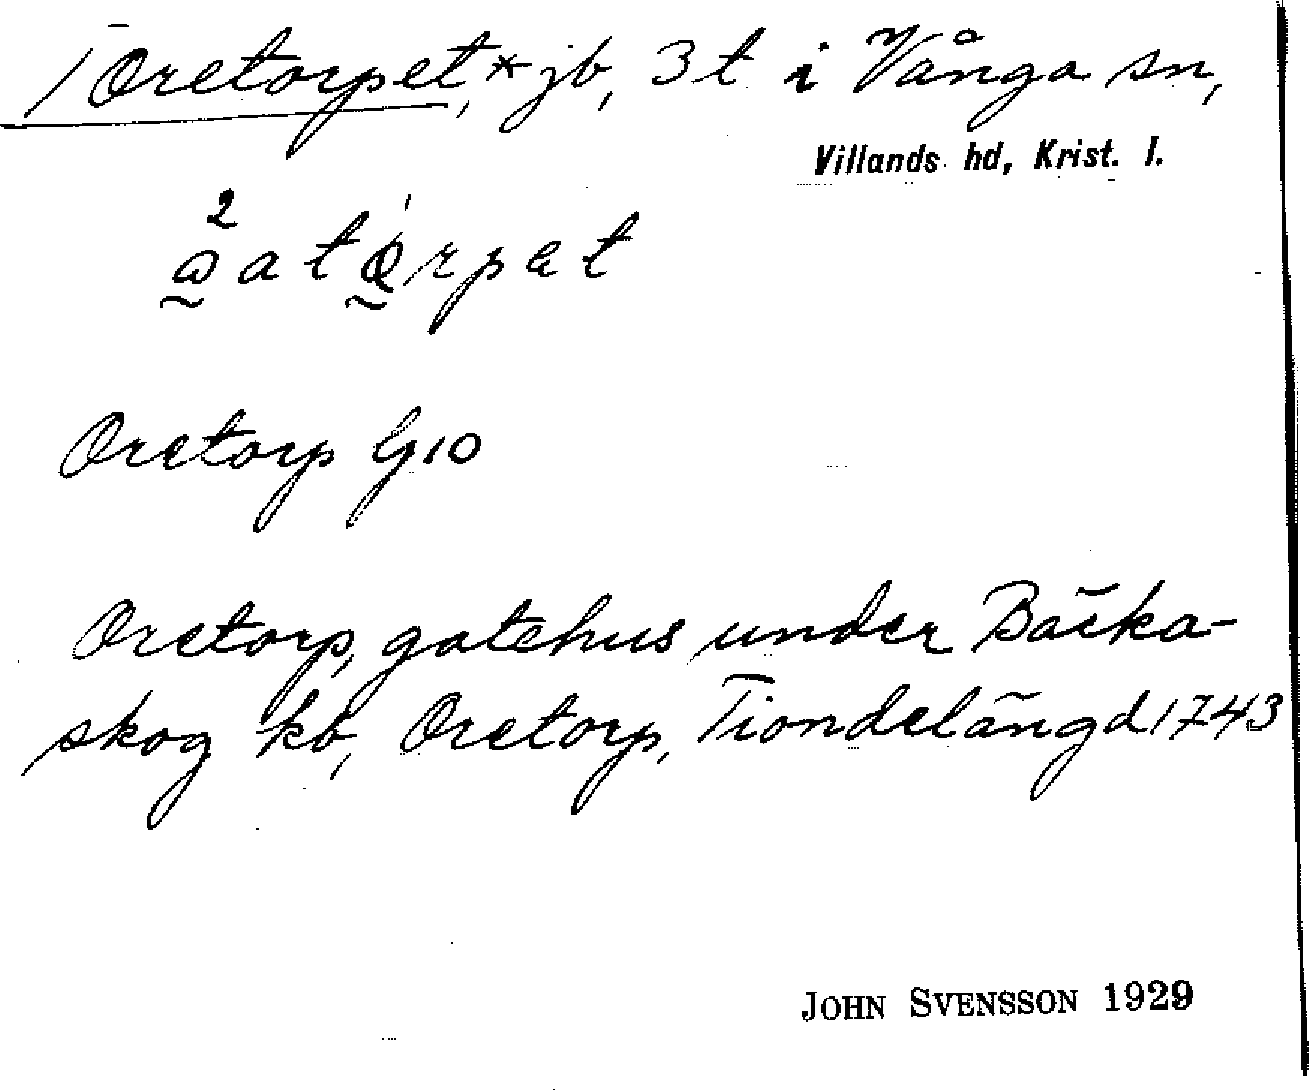 / Oretorpet,* jb, 3 t i Vånga sn,
Villands hd, Krist. l.
Oretorp G10
Oretorp, gatehus under Bäcka-
skog kb, Oretorp, Tiondelängd 1743
JOHN SVENSSON 1929